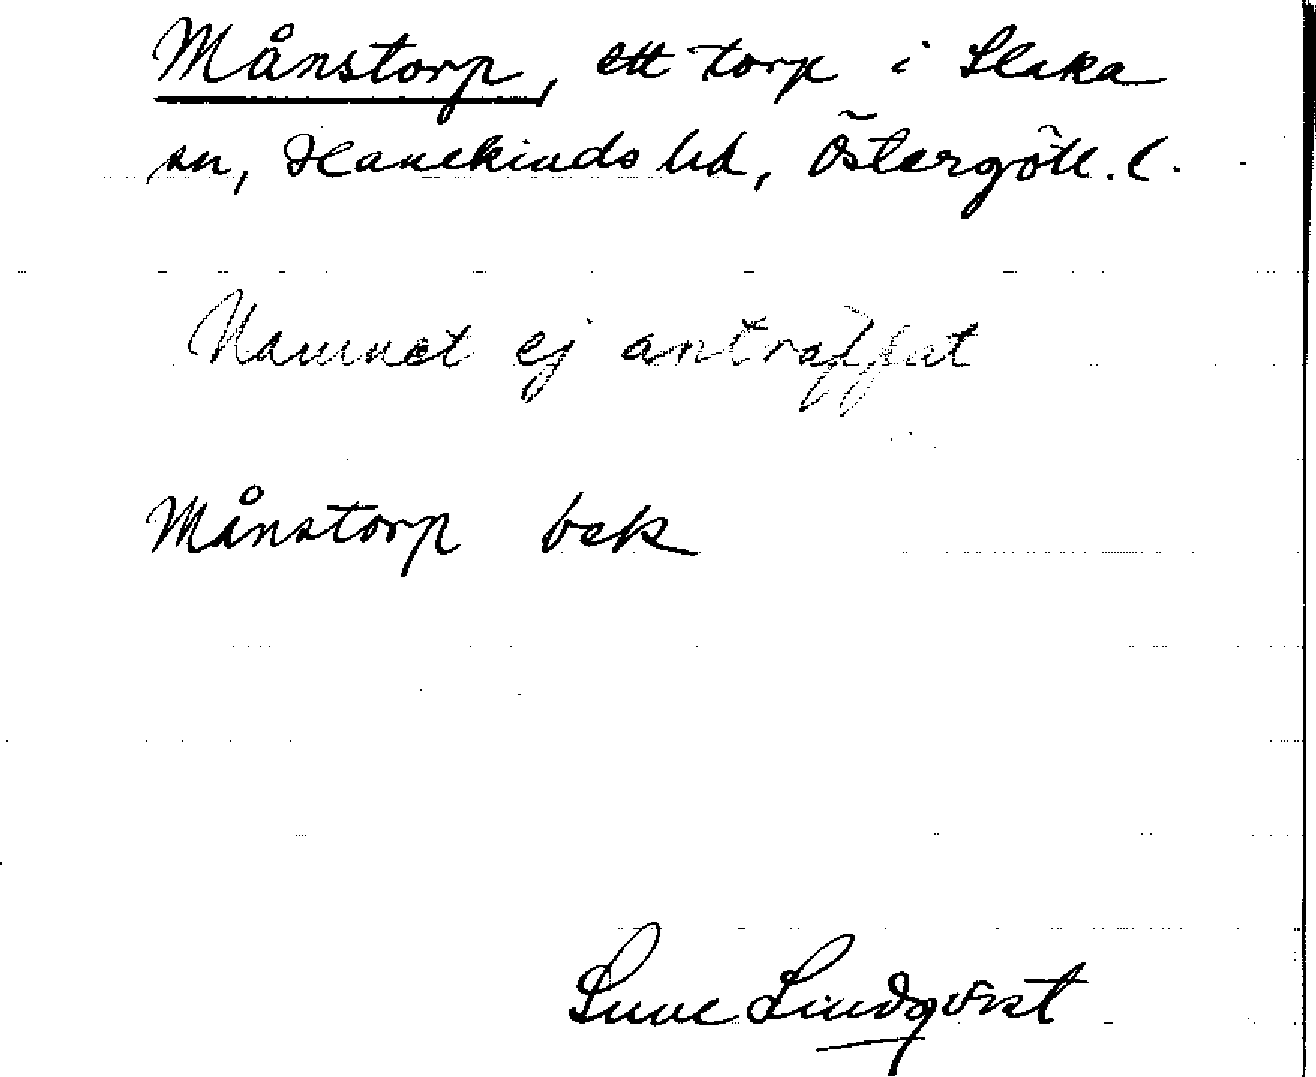 Månstorp, ett torp i Slaka
sn, Hanekinds hd, Östergötl. l.
Namnet ej anträffat
Månstorp bek
Sune Lindqvist